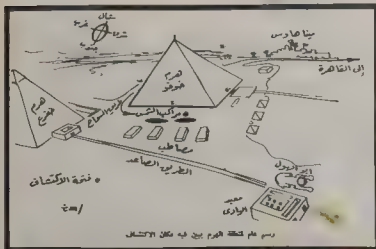 شمال
غرب
شرق
جنوب
مينا هاوس
إلى القاهرة
هرم
خوفو
هرم
خفرع
مراكب الشمس
مصاطب
الطريق الصاعد
أبو الهول
معبد
الوادى
رسم عام لمنطقة الهرم يبين فيه مكان الاكتشاف